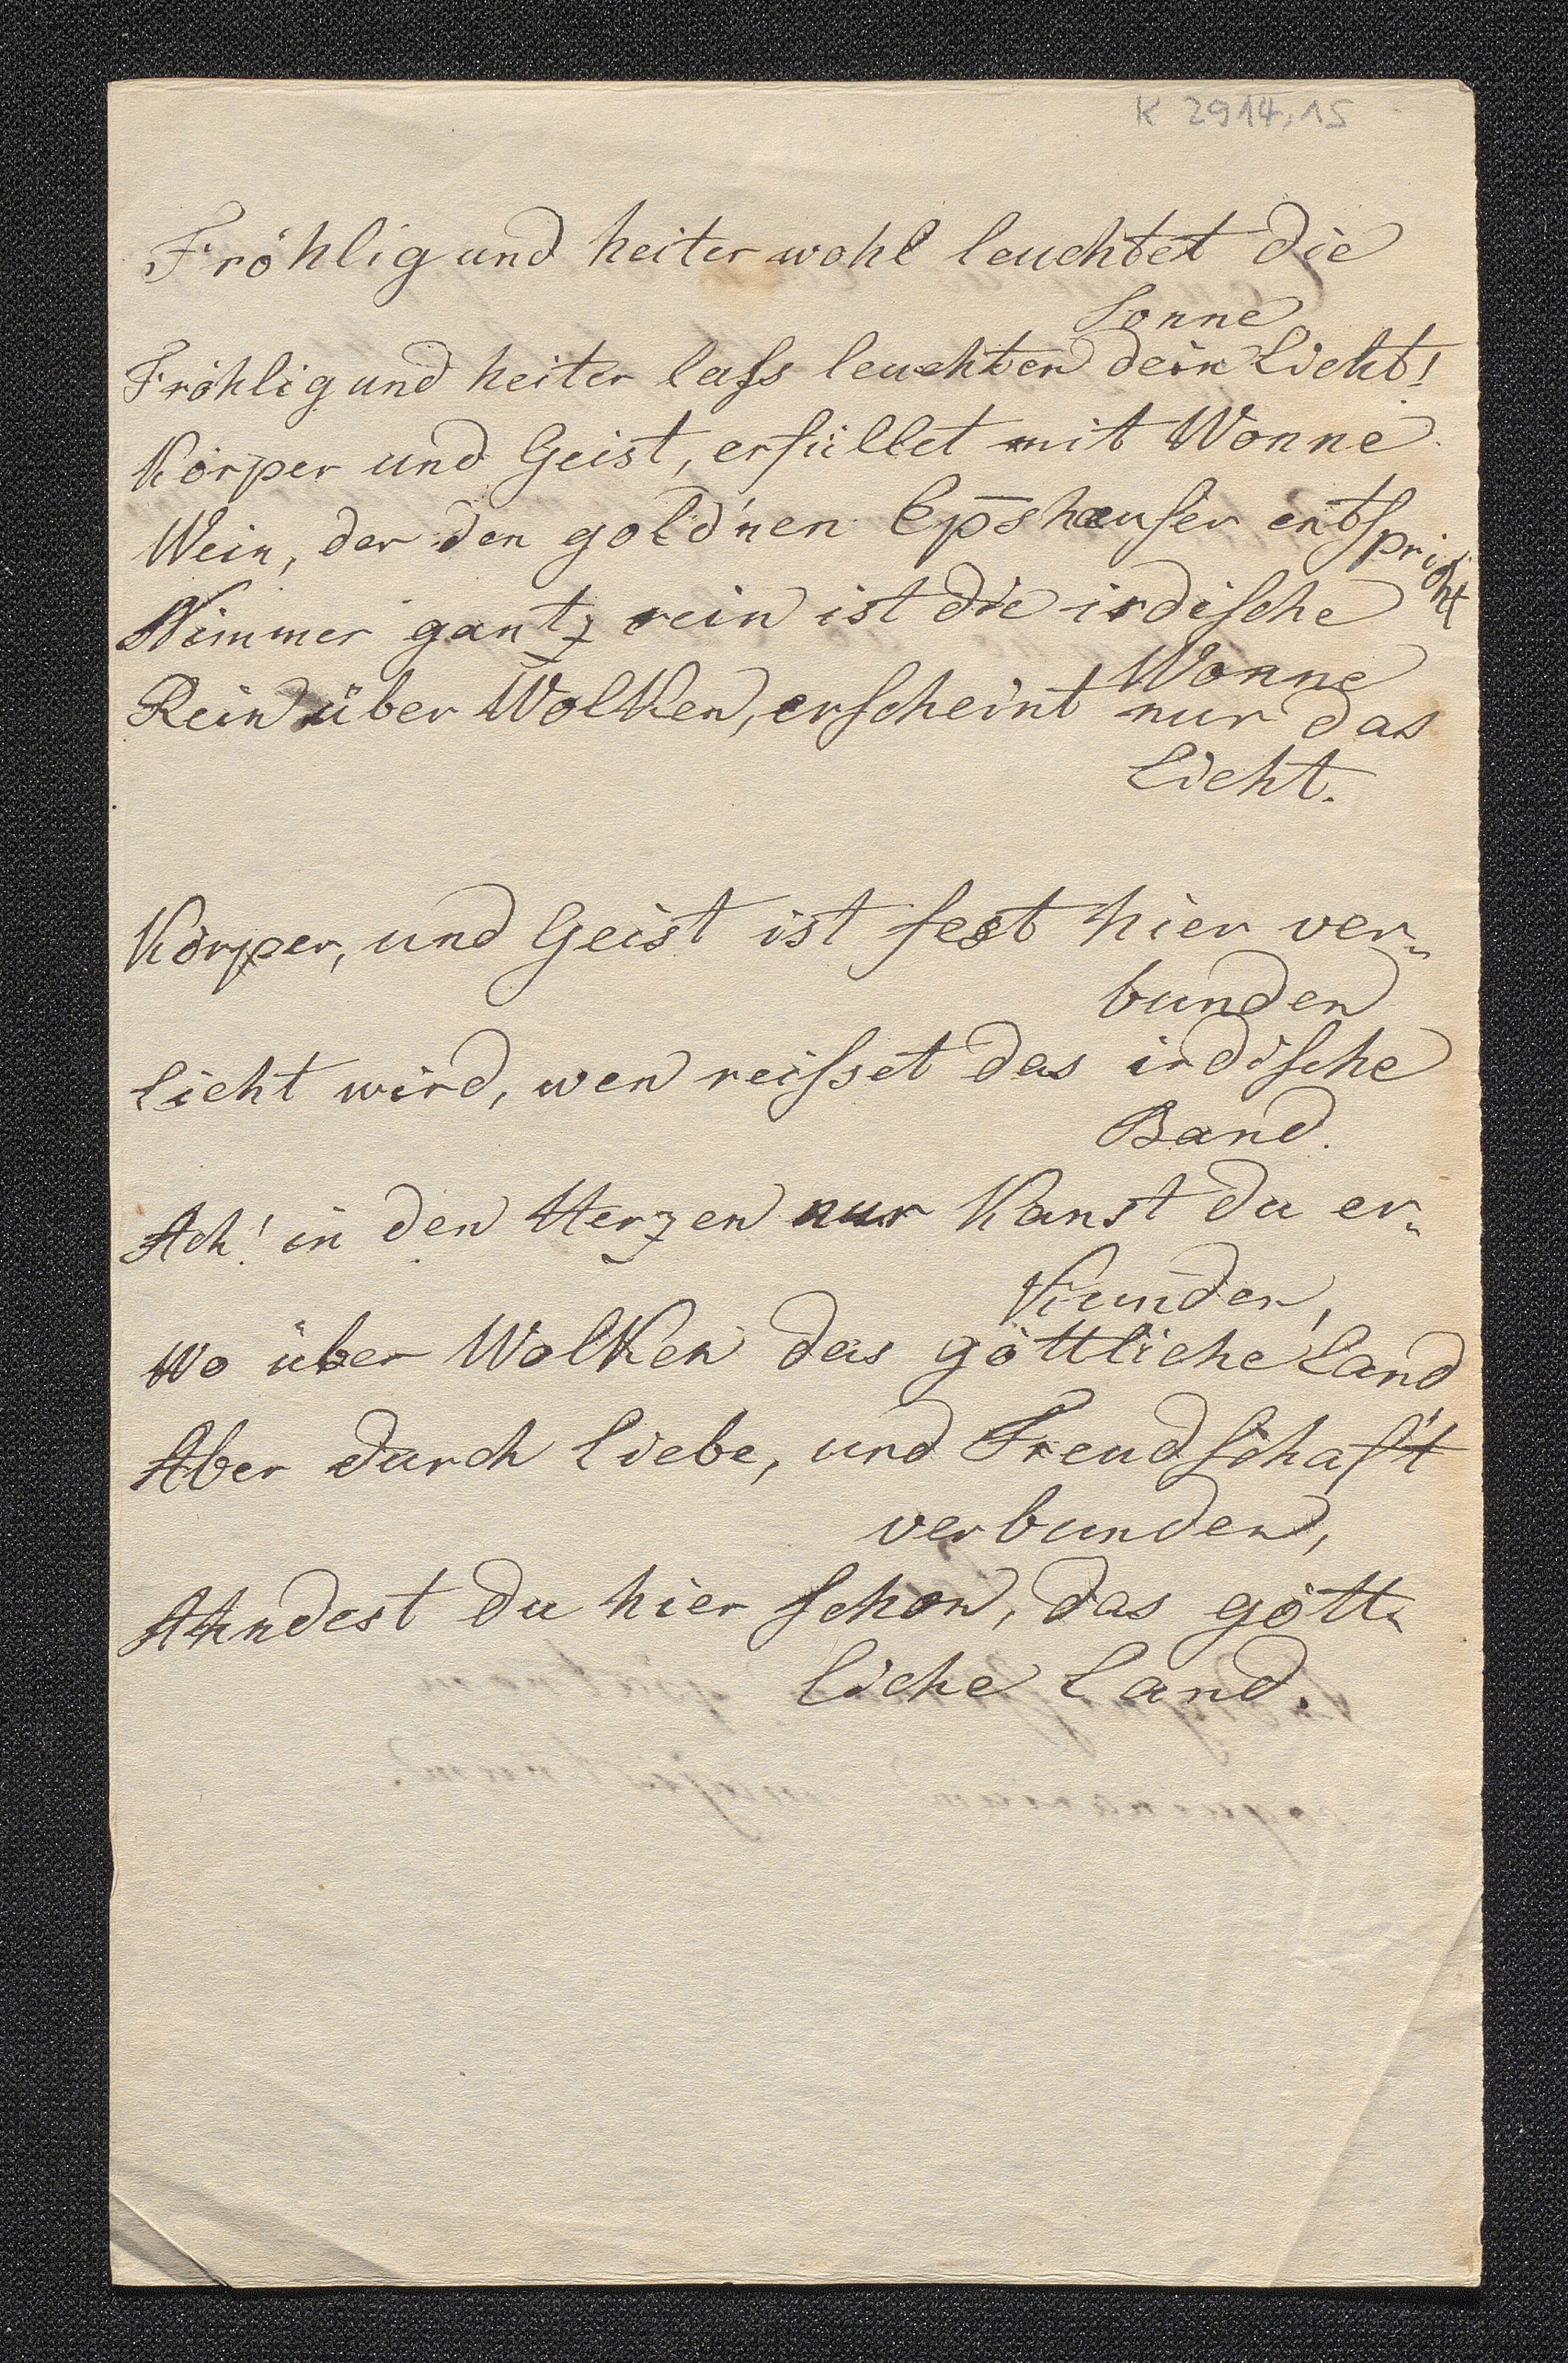 K 2914,15
Fröhlig und heiter wohl leuchtet die
Sonne
Fröhlig und heiter laſs leuchten dein Licht!
Körper und Geist, erfüllet mit Wonne
Wein, der den gold'nen Ep̄shæuſer entſpricht
Nimmer gantz rein ist die irdiſche
Wonne
Rein über Wolken, erſcheint nur das
Licht.
Körper, und Geist ist fest hier ver„
bunden
Licht wird, wen reiſset das irdiſche
Band.
Ach! in den Herzen nur Kanst du er„
Kunden,
Wo über Wolken das göttliche Land
Aber durch Liebe, und Freudſchaft
verbunden,
Ahndest du hier ſchon, das gött„
liche Land.